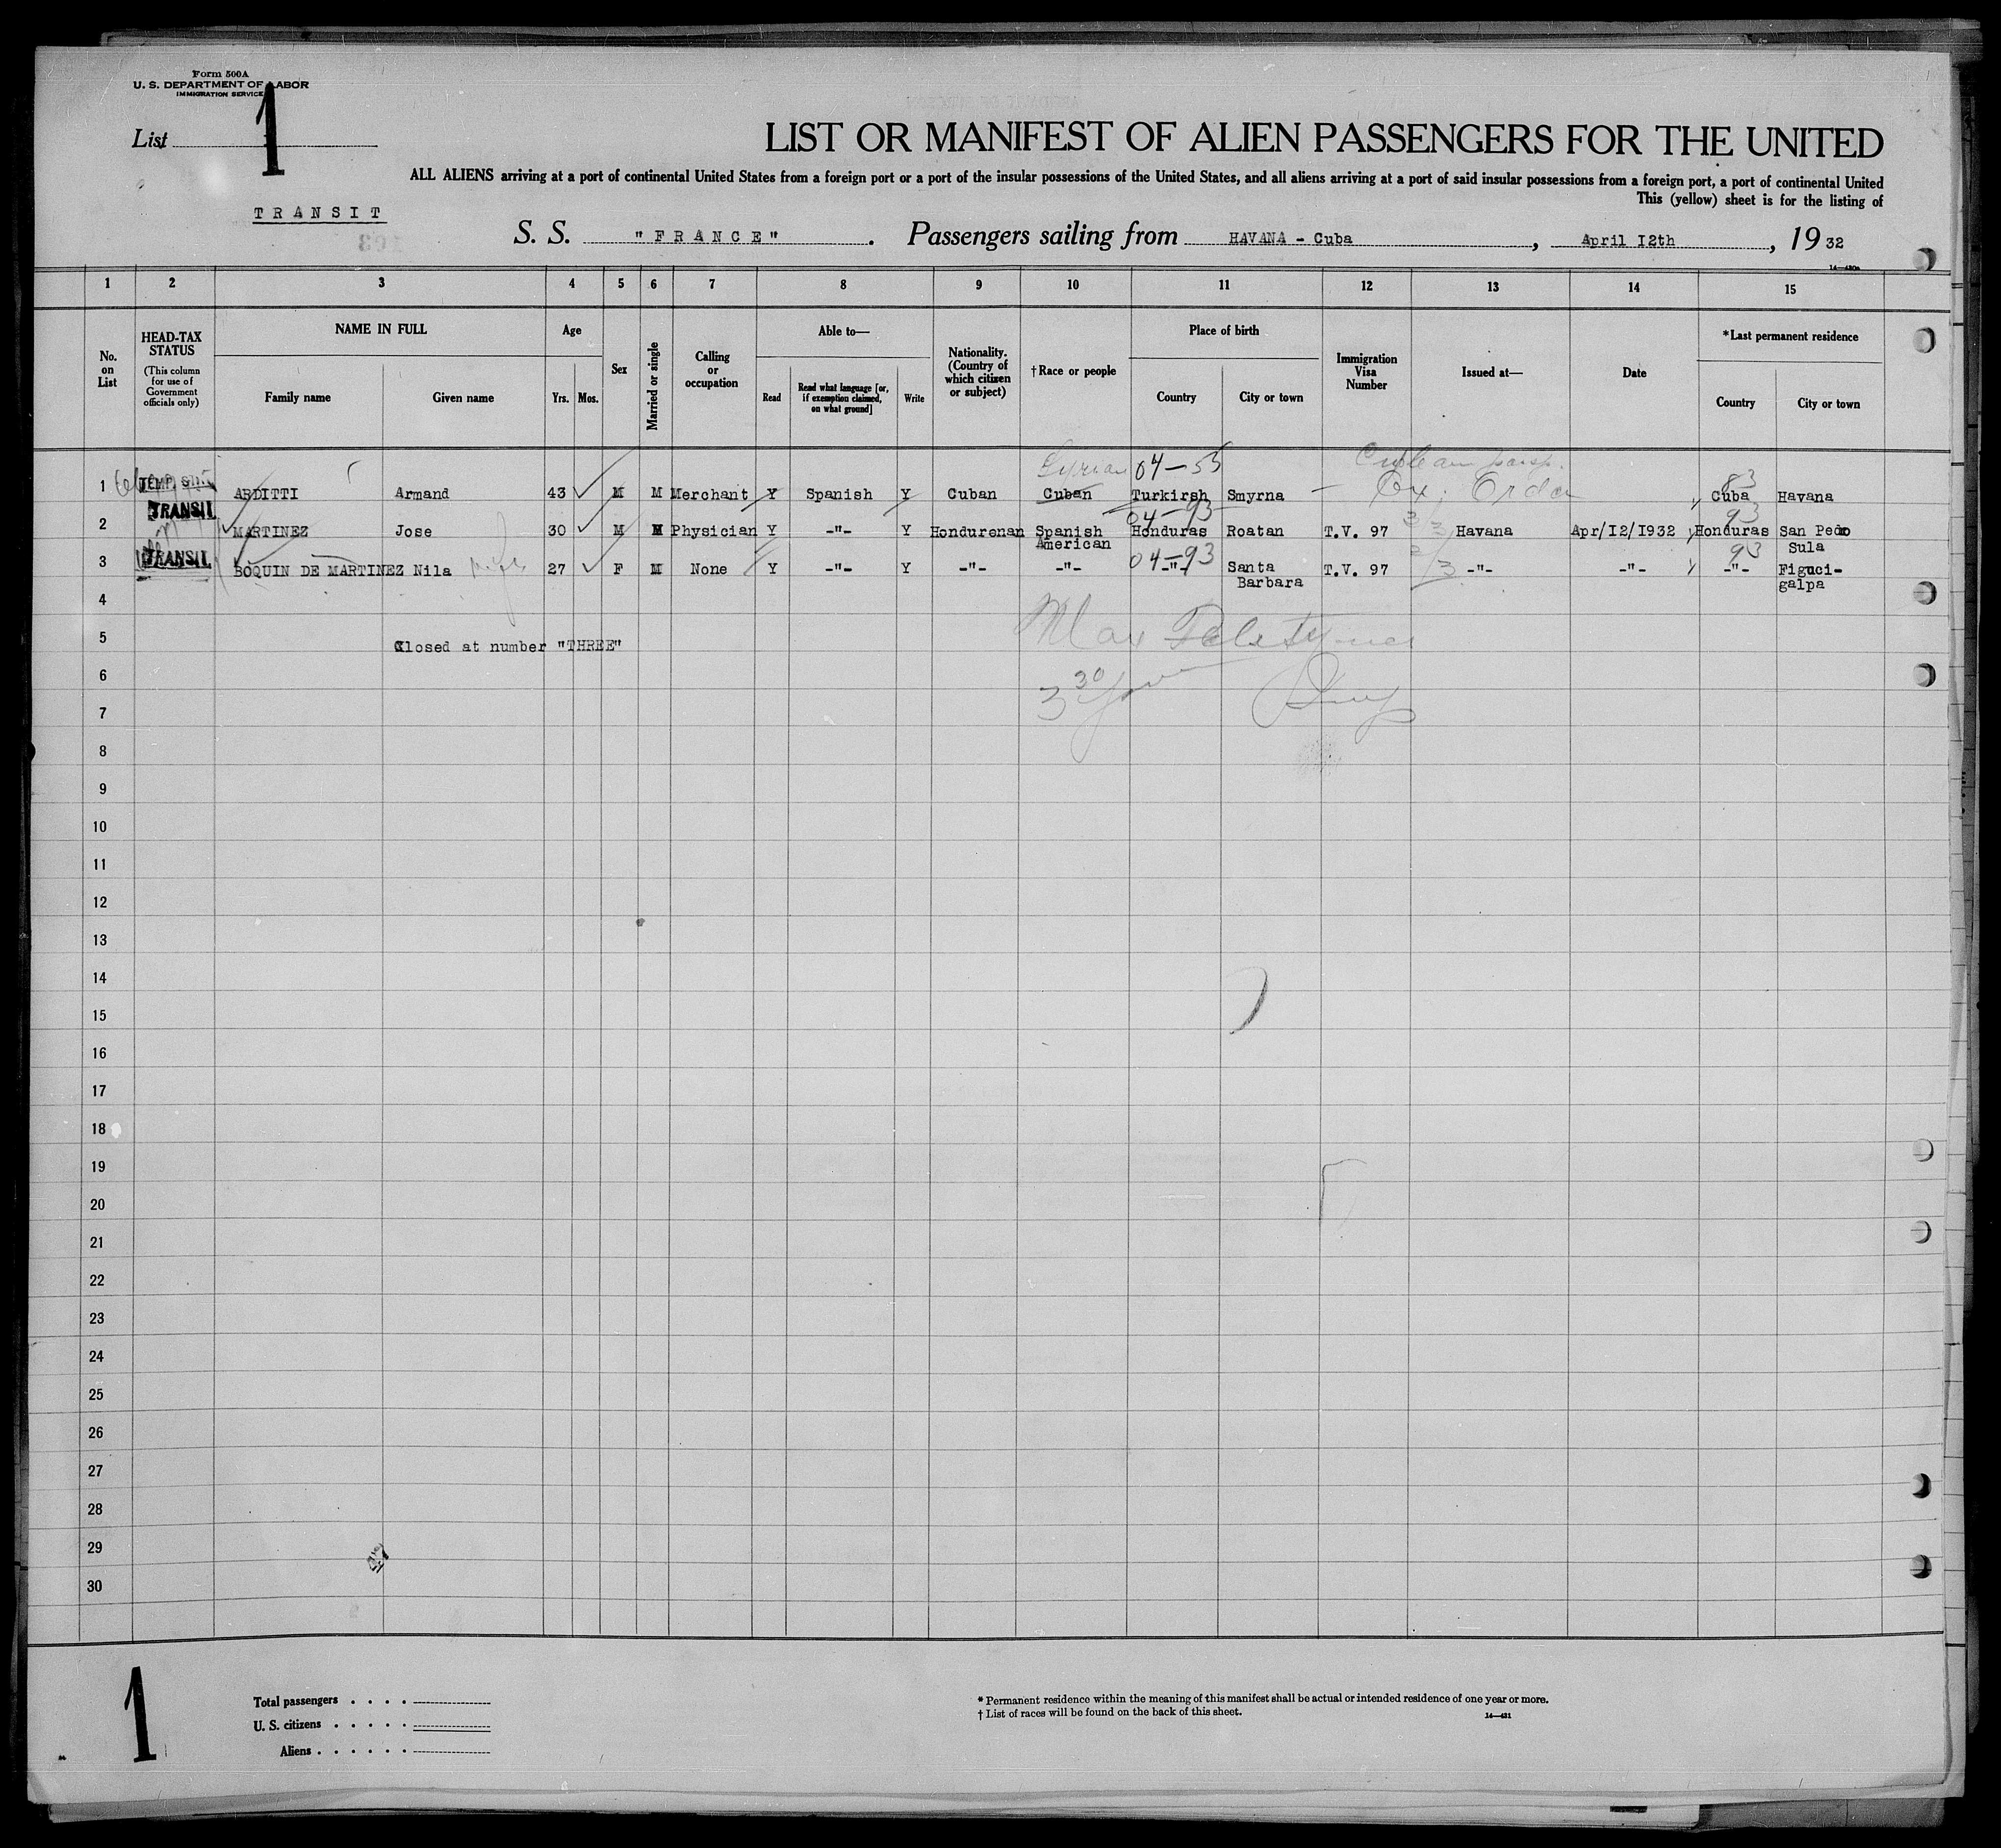 Form 500A
U. S. DEPARTMENT OF LABOR
IMMIGRATION SERVICE
List 1
LIST OR MANIFEST OF ALIEN PASSENGERS FOR THE UNITED
ALL ALIENS arriving at a port of continental United States from a foreign port or a port of the insular possessions of the United States, and all aliens arriving at a port of said insular possessions from a foreign port, a port of continental United
This (yellow) sheet is for the listing of
TRANSIT
S. S. "FRANCE". Passengers sailing from HAVANA - Cuba, April I2th, 19 32
1 2 3 4 5 6 7 8 9 10 11 12 13 14 15
No. on List
HEAD-TAX STATUS
(This column for use of Government officials only)
NAME IN FULL
Family name Given name
Age
Yrs. Mos.
Sex
Married or single
Calling or occupation
Able to—
Read
Read what language [or, if exemption claimed, on what ground]
Write
Nationality. (Country of which citizen or subject)
†Race or people
Place of birth
Country City or town
Immigration Visa Number
Issued at—
Date
*Last permanent residence
Country City or town
Syrian 04-53 Cuban passp. 83
1 TEMP. ARDITTI Armand 43 M M Merchant Y Spanish Y Cuban Cuban Turkirsh Smyrna - Ex. Order Cuba Havana
TRANSIT 04-93 93
2 MARTINEZ Jose 30 M M Physician Y -"- Y Hondurenan Spanish American Honduras Roatan T.V. 97 Havana Apr/I2/I932 Honduras San Pedo Sula
TRANSIT 04-93 93
3 BOQUIN DE MARTINEZ Nila 27 F M None Y -"- Y -"- -"- -"- Santa Barbara T.V. 97 -"- -"- -"- Figuci-galpa
4
5 Closed at number "THREE"
6 3 30
7
8
9
10
11
12
13
14
15
16
17
18
19
20
21
22
23
24
25
26
27
28
29
30
1
Total passengers . . . .
U. S. citizens . . . . .
Aliens . . . . . .
* Permanent residence within the meaning of this manifest shall be actual or intended residence of one year or more.
† List of races will be found on the back of this sheet.
14—431